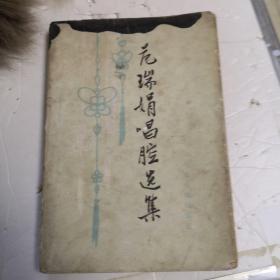 范瑞娟唱腔选集